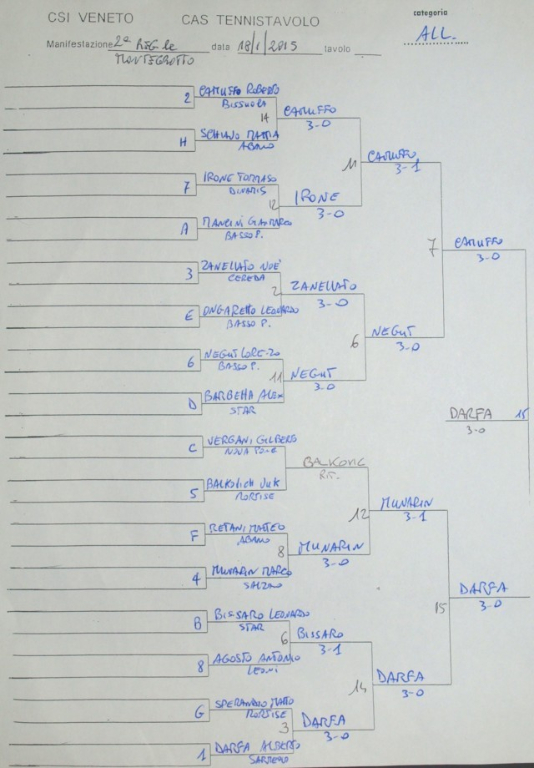 CSI VENETO CAS TENNISTAVOLO categoria
Manifestazione 2ª REG.le data 18/1/2015 tavolo ALL.
MONTEGROTTO
2 CAMUFFO ROBERTO
BISSUOLA
14 CAMUFFO
3-0
H SCHIAVO MATTIA
ABANO
11 CAMUFFO
3-1
7 IRONE TOMMASO
DINAMIS
12 IRONE
3-0
A MANCINI GIANMARCO
BASSO P.
7 CAMUFFO
3-0
3 ZANELLATO NOE'
CEREDA
2 ZANELLATO
3-0
E ONGARETTO LEONARDO
BASSO P.
6 NEGUT
3-0
6 NEGUT LORENZO
BASSO P.
11 NEGUT
3-0
D BARBETTA ALEX
STAR
DARFA 15
3-0
C VERGANI GILBERTO
BALKOVIC
RIT.
5 BALKOVICH VUK
MORTISE
12 MUNARIN
3-1
F RETANI MATTEO
ABANO
8 MUNARIN
3-0
4 MUNARIN MARCO
SALZANO
15 DARFA
3-0
B BISSARO LEONARDO
STAR
6 BISSARO
3-1
8 AGOSTO ANTONIO
LEONI
14 DARFA
3-0
G SPERANDIO MATTEO
MORTISE
3 DARFA
3-0
1 DARFA ALBERTO
SARMEGO